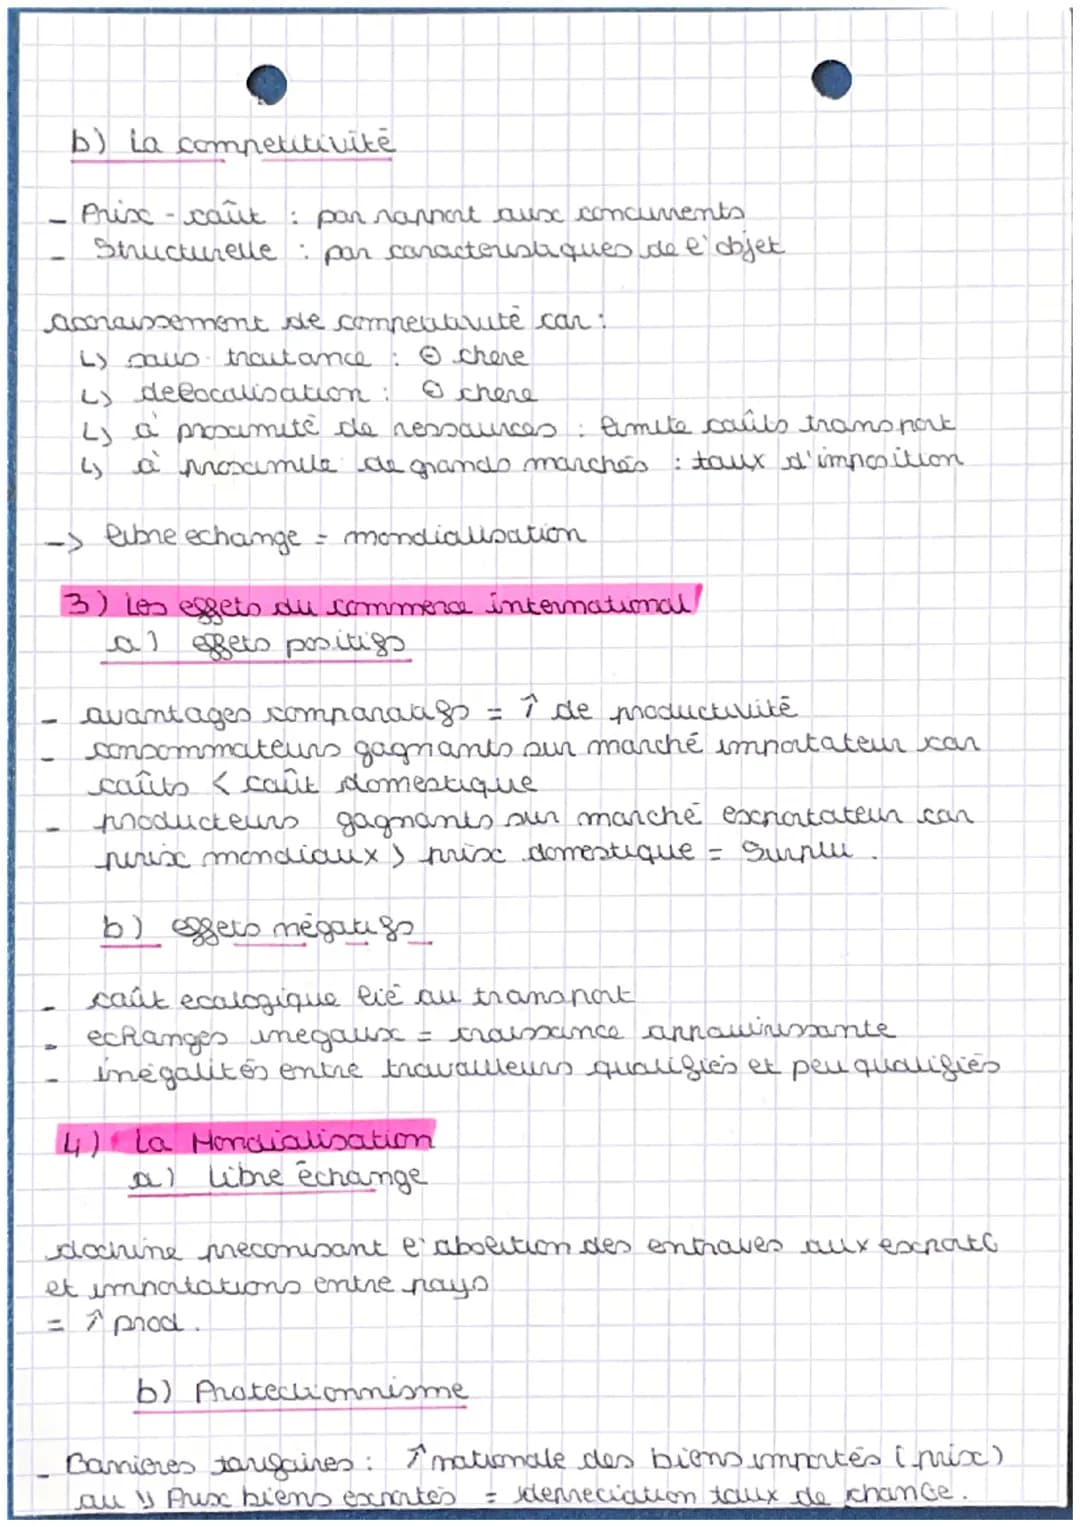 b) La competitivité
- Prix - coût : par rapport aux concurrents
- Structurelle : par caracteristiques de l'objet
accroissement de competitivité car :
↳ sous-traitance : ⊖ chere
↳ delocalisation : ⊖ chere
↳ à proximité de ressources : limite coûts transport
↳ à proximite de grands marchés : taux d'imposition
-> libre echange = mondialisation
3) Les effets du commerce international
a) effets positifs
- avantages comparatifs = ↑ de productivité
- consommateurs gagnants sur marché importateur car
coûts < coût domestique
- producteurs gagnants sur marché exportateur car
prix mondiaux > prix domestique = Surplu.
b) effets négatifs
- coût ecologique lié au transport
- echanges inegaux = croissance appauvrissante
- inégalités entre travailleurs qualifiés et peu qualifiés
4) La Mondialisation
a) Libre échange
doctrine preconisant l'abolition des entraves aux export°
et importations entre pays
= ↑ prod.
b) Protectionnisme
- Barrieres tarifaires : ↑ nationale des biens importés (prix)
ou ↘ Prix biens exportés = depreciation taux de change.